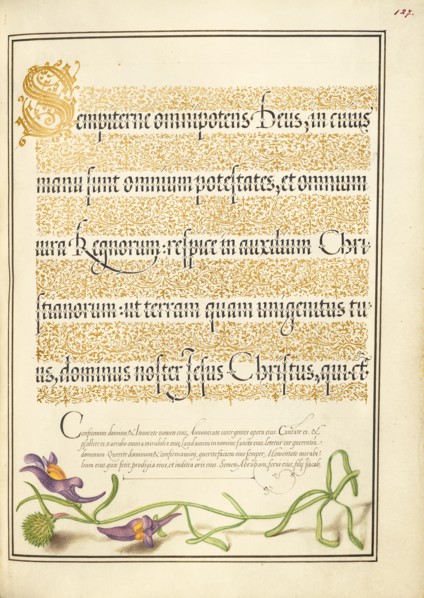 127.
Sempiterne omnipotens Deus, in cuius
manu sunt omnium potestates, et omnium
iura Regnorum: respice in auxilium Chri-
stianorum: ut terram quam unigenitus tu-
us, dominus noster Jesus Christus, qui est
Confitemini domino, & invocate nomen eius, Annunciate inter gentes opera eius. Cantate ei, &
psallite ei, narrate omnia mirabilia eius, Laudamini in nomine sancto eius: letetur cor querentium
dominum. Querite dominum & confirmamini, querite faciem eius semper, Mementote mirabi-
lium eius que fecit, prodigia eius, et iudicia oris eius. Semen Abraham, servi eius, filij Jacob,